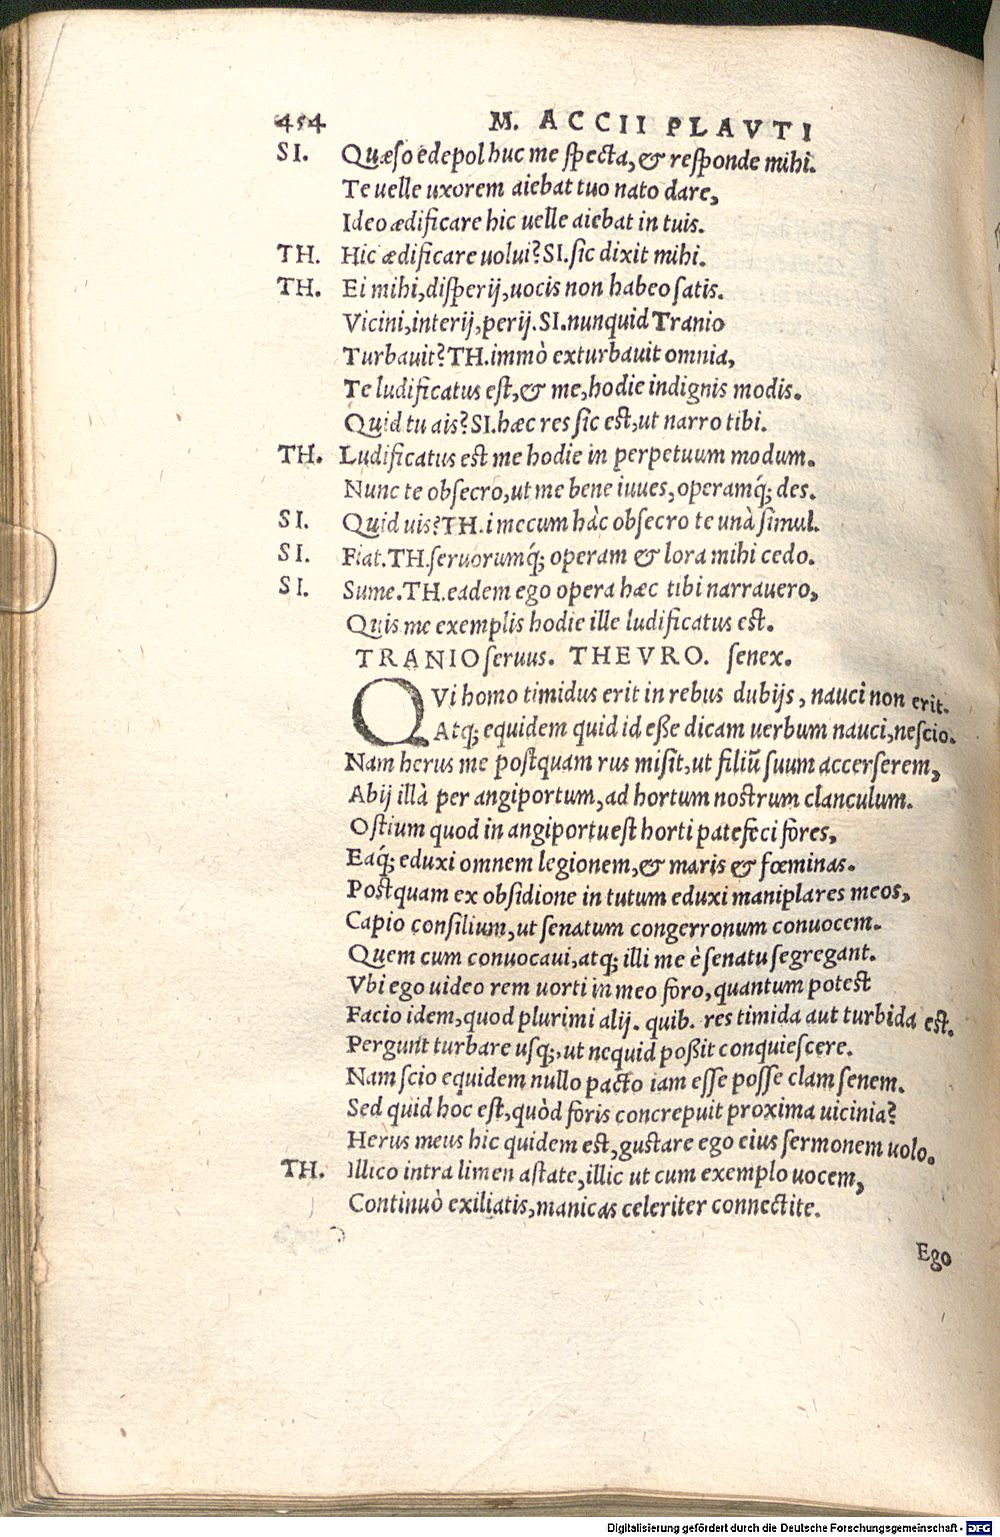 454 M. ACCII PLAVTI
SI. Quæso edepol huc me specta, & responde mihi.
Te uelle uxorem aiebat tuo nato dare,
Ideo ædificare hic uelle aiebat in tuis.
TH. Hic ædificare uolui? SI. sic dixit mihi.
TH. Ei mihi, disperij, uocis non habeo satis.
Vicini, interij, perij. SI. nunquid Tranio
Turbauit? TH. immò exturbauit omnia,
Te ludificatus est, & me, hodie indignis modis.
Quid tu ais? SI. hæc res sic est, ut narro tibi.
TH. Ludificatus est me hodie in perpetuum modum.
Nunc te obsecro, ut me bene iuues, operamq́; des.
SI. Quid uis? TH. i mecum hàc obsecro te unà simul.
SI. Fiat. TH. seruorumq́; operam & lora mihi cedo.
SI. Sume. TH. eadem ego opera hæc tibi narrauero,
Quis me exemplis hodie ille ludificatus est.
TRANIO seruus. THEVRO. senex.
QVi homo timidus erit in rebus dubijs, nauci non erit.
Atq; equidem quid id esse dicam uerbum nauci, nescio.
Nam herus me postquam rus misit, ut filiũ suum accerserem,
Abij illà per angiportum, ad hortum nostrum clanculum.
Ostium quod in angiportu est horti patefeci fores,
Eaq́; eduxi omnem legionem, & maris & fœminas.
Postquam ex obsidione in tutum eduxi maniplares meos,
Capio consilium, ut senatum congerronum conuocem.
Quem cum conuocaui, atq; illi me è senatu segregant.
Vbi ego uideo rem uorti in meo foro, quantum potest
Facio idem, quod plurimi alij. quib. res timida aut turbida est.
Pergunt turbare usq;, ut nequid poßit conquiescere.
Nam scio equidem nullo pacto iam esse posse clam senem.
Sed quid hoc est, quòd foris concrepuit proxima uicinia?
Herus meus hic quidem est, gustare ego eius sermonem uolo.
TH. Illico intra limen astate, illic ut cum exemplo uocem,
Continuò exiliatis, manicas celeriter connectite.
Ego
Digitalisierung gefördert durch die Deutsche Forschungsgemeinschaft - DFG